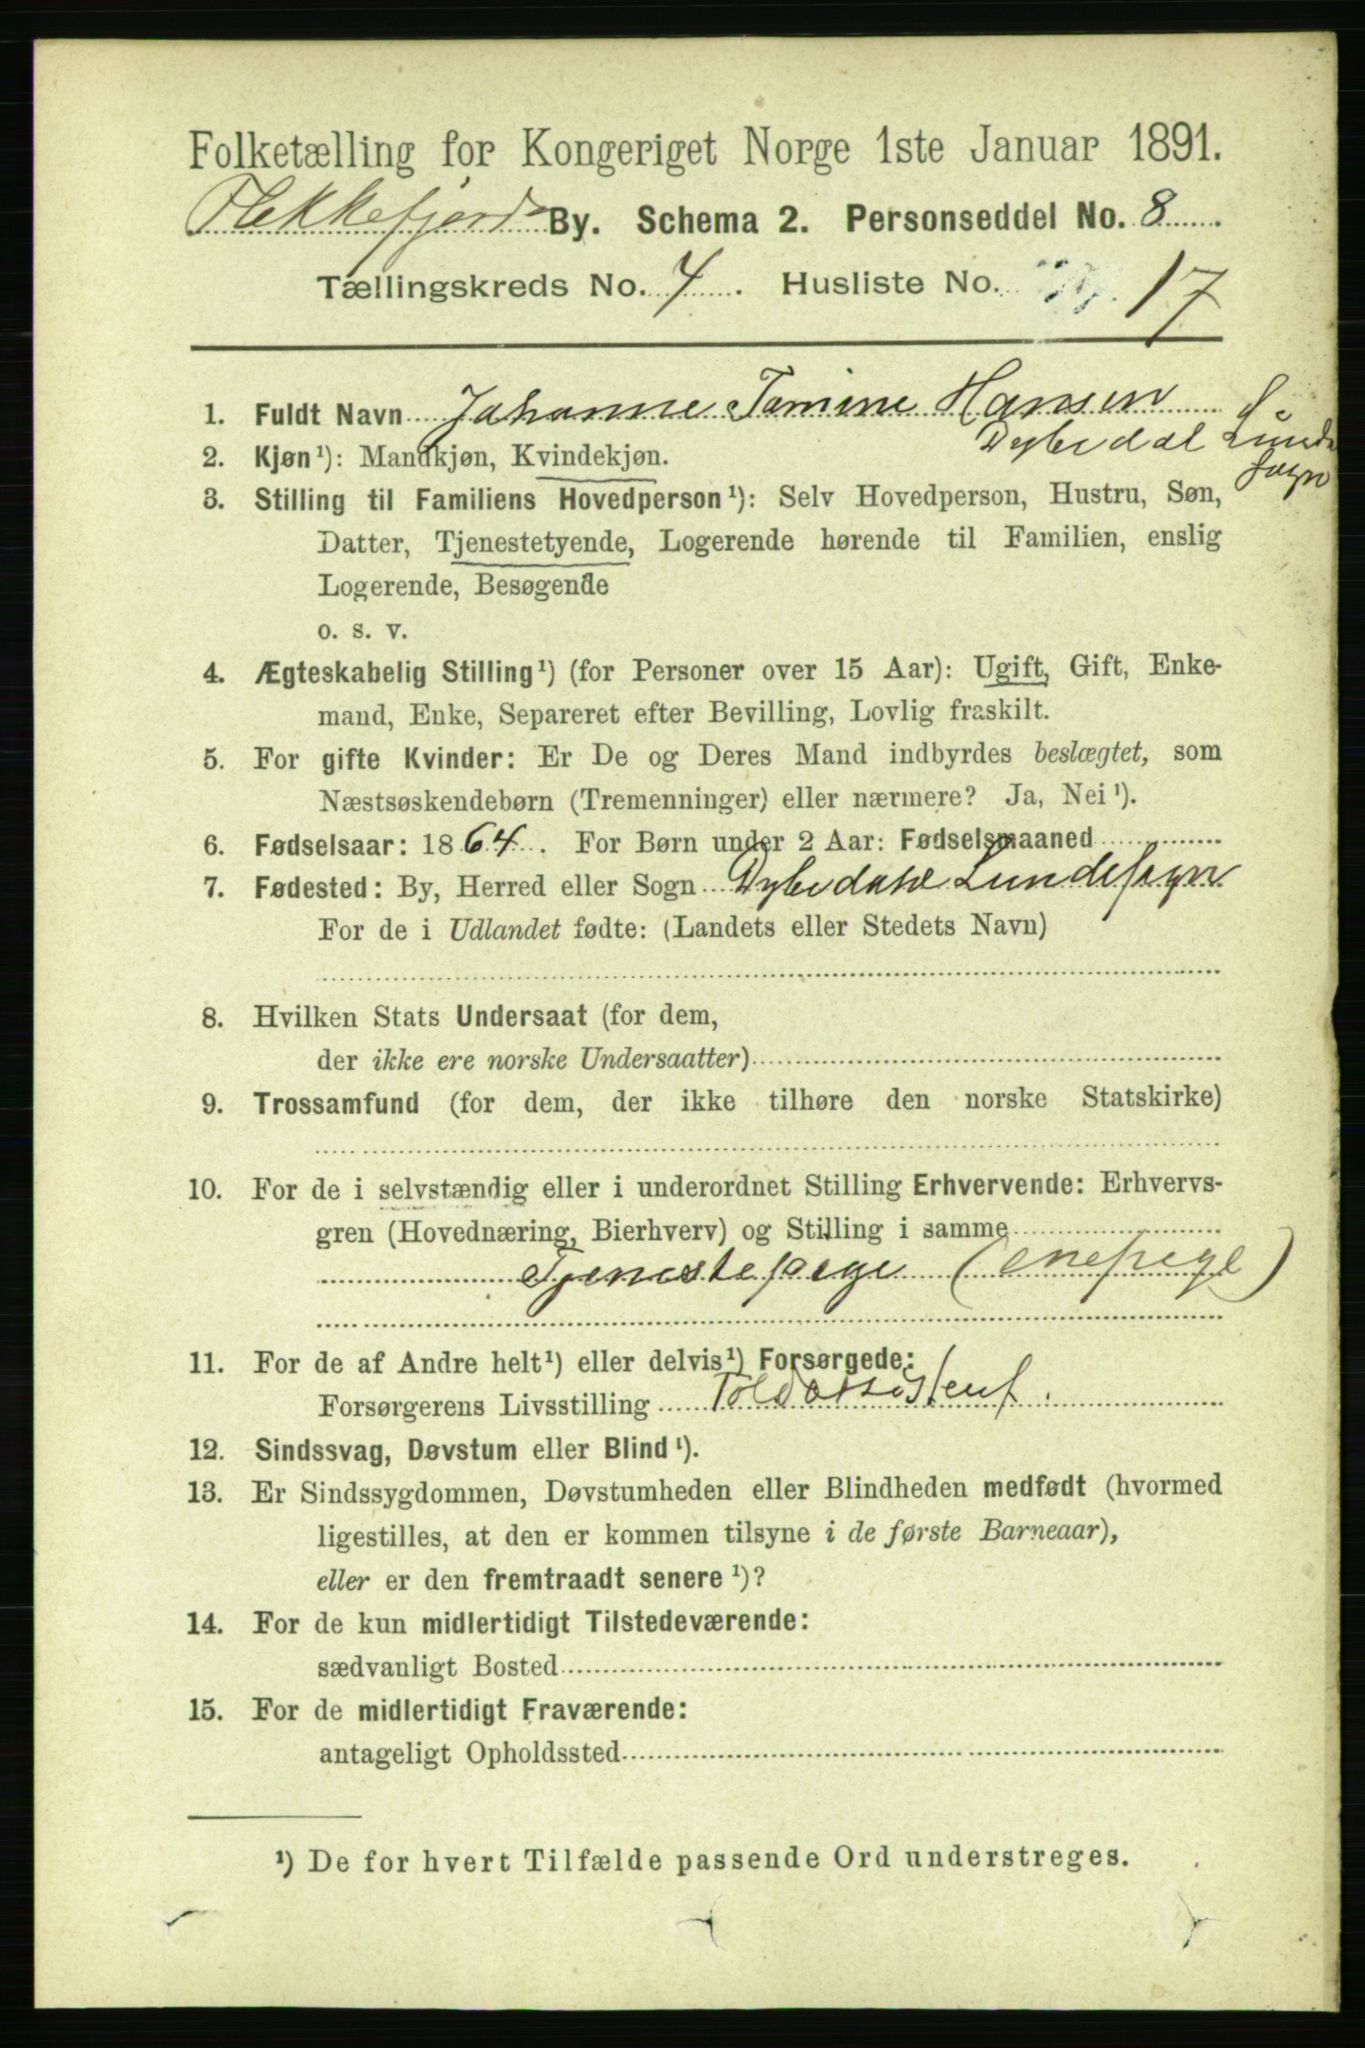 Folketælling for Kongeriget Norge 1ste Januar 1891.
Flekkefjord By. Schema 2. Personseddel No. 8
Tællingskreds No. 4. Husliste No. 17
1. Fuldt Navn Johanne Tomine Hansen
Dybedal Lunde
Sogn
2. Kjøn¹): Mandkjøn, Kvindekjøn.
3. Stilling til Familiens Hovedperson¹): Selv Hovedperson, Hustru, Søn,
Datter, Tjenestetyende, Logerende hørende til Familien, enslig
Logerende, Besøgende
o. s. v.
4. Ægteskabelig Stilling¹) (for Personer over 15 Aar): Ugift, Gift, Enke-
mand, Enke, Separeret efter Bevilling, Lovlig fraskilt.
5. For gifte Kvinder: Er De og Deres Mand indbyrdes beslægtet, som
Næstsøskendebørn (Tremenninger) eller nærmere? Ja, Nei¹).
6. Fødselsaar: 1864. For Børn under 2 Aar: Fødselsmaaned
7. Fødested: By, Herred eller Sogn Dybedahl Lundesogn
For de i Udlandet fødte: (Landets eller Stedets Navn)
8. Hvilken Stats Undersaat (for dem,
der ikke ere norske Undersaatter)
9. Trossamfund (for dem, der ikke tilhøre den norske Statskirke)
10. For de i selvstændig eller i underordnet Stilling Erhvervende: Erhvervs-
gren (Hovednæring, Bierhverv) og Stilling i samme
Tjenestepige (enepige)
11. For de af Andre helt¹) eller delvis¹) Forsørgede:
Forsørgerens Livsstilling Toldassistent.
12. Sindssvag, Døvstum eller Blind¹).
13. Er Sindssygdommen, Døvstumheden eller Blindheden medfødt (hvormed
ligestilles, at den er kommen tilsyne i de første Barneaar),
eller er den fremtraadt senere¹)?
14. For de kun midlertidigt Tilstedeværende:
sædvanligt Bosted
15. For de midlertidigt Fraværende:
antageligt Opholdssted
¹) De for hvert Tilfælde passende Ord understreges.